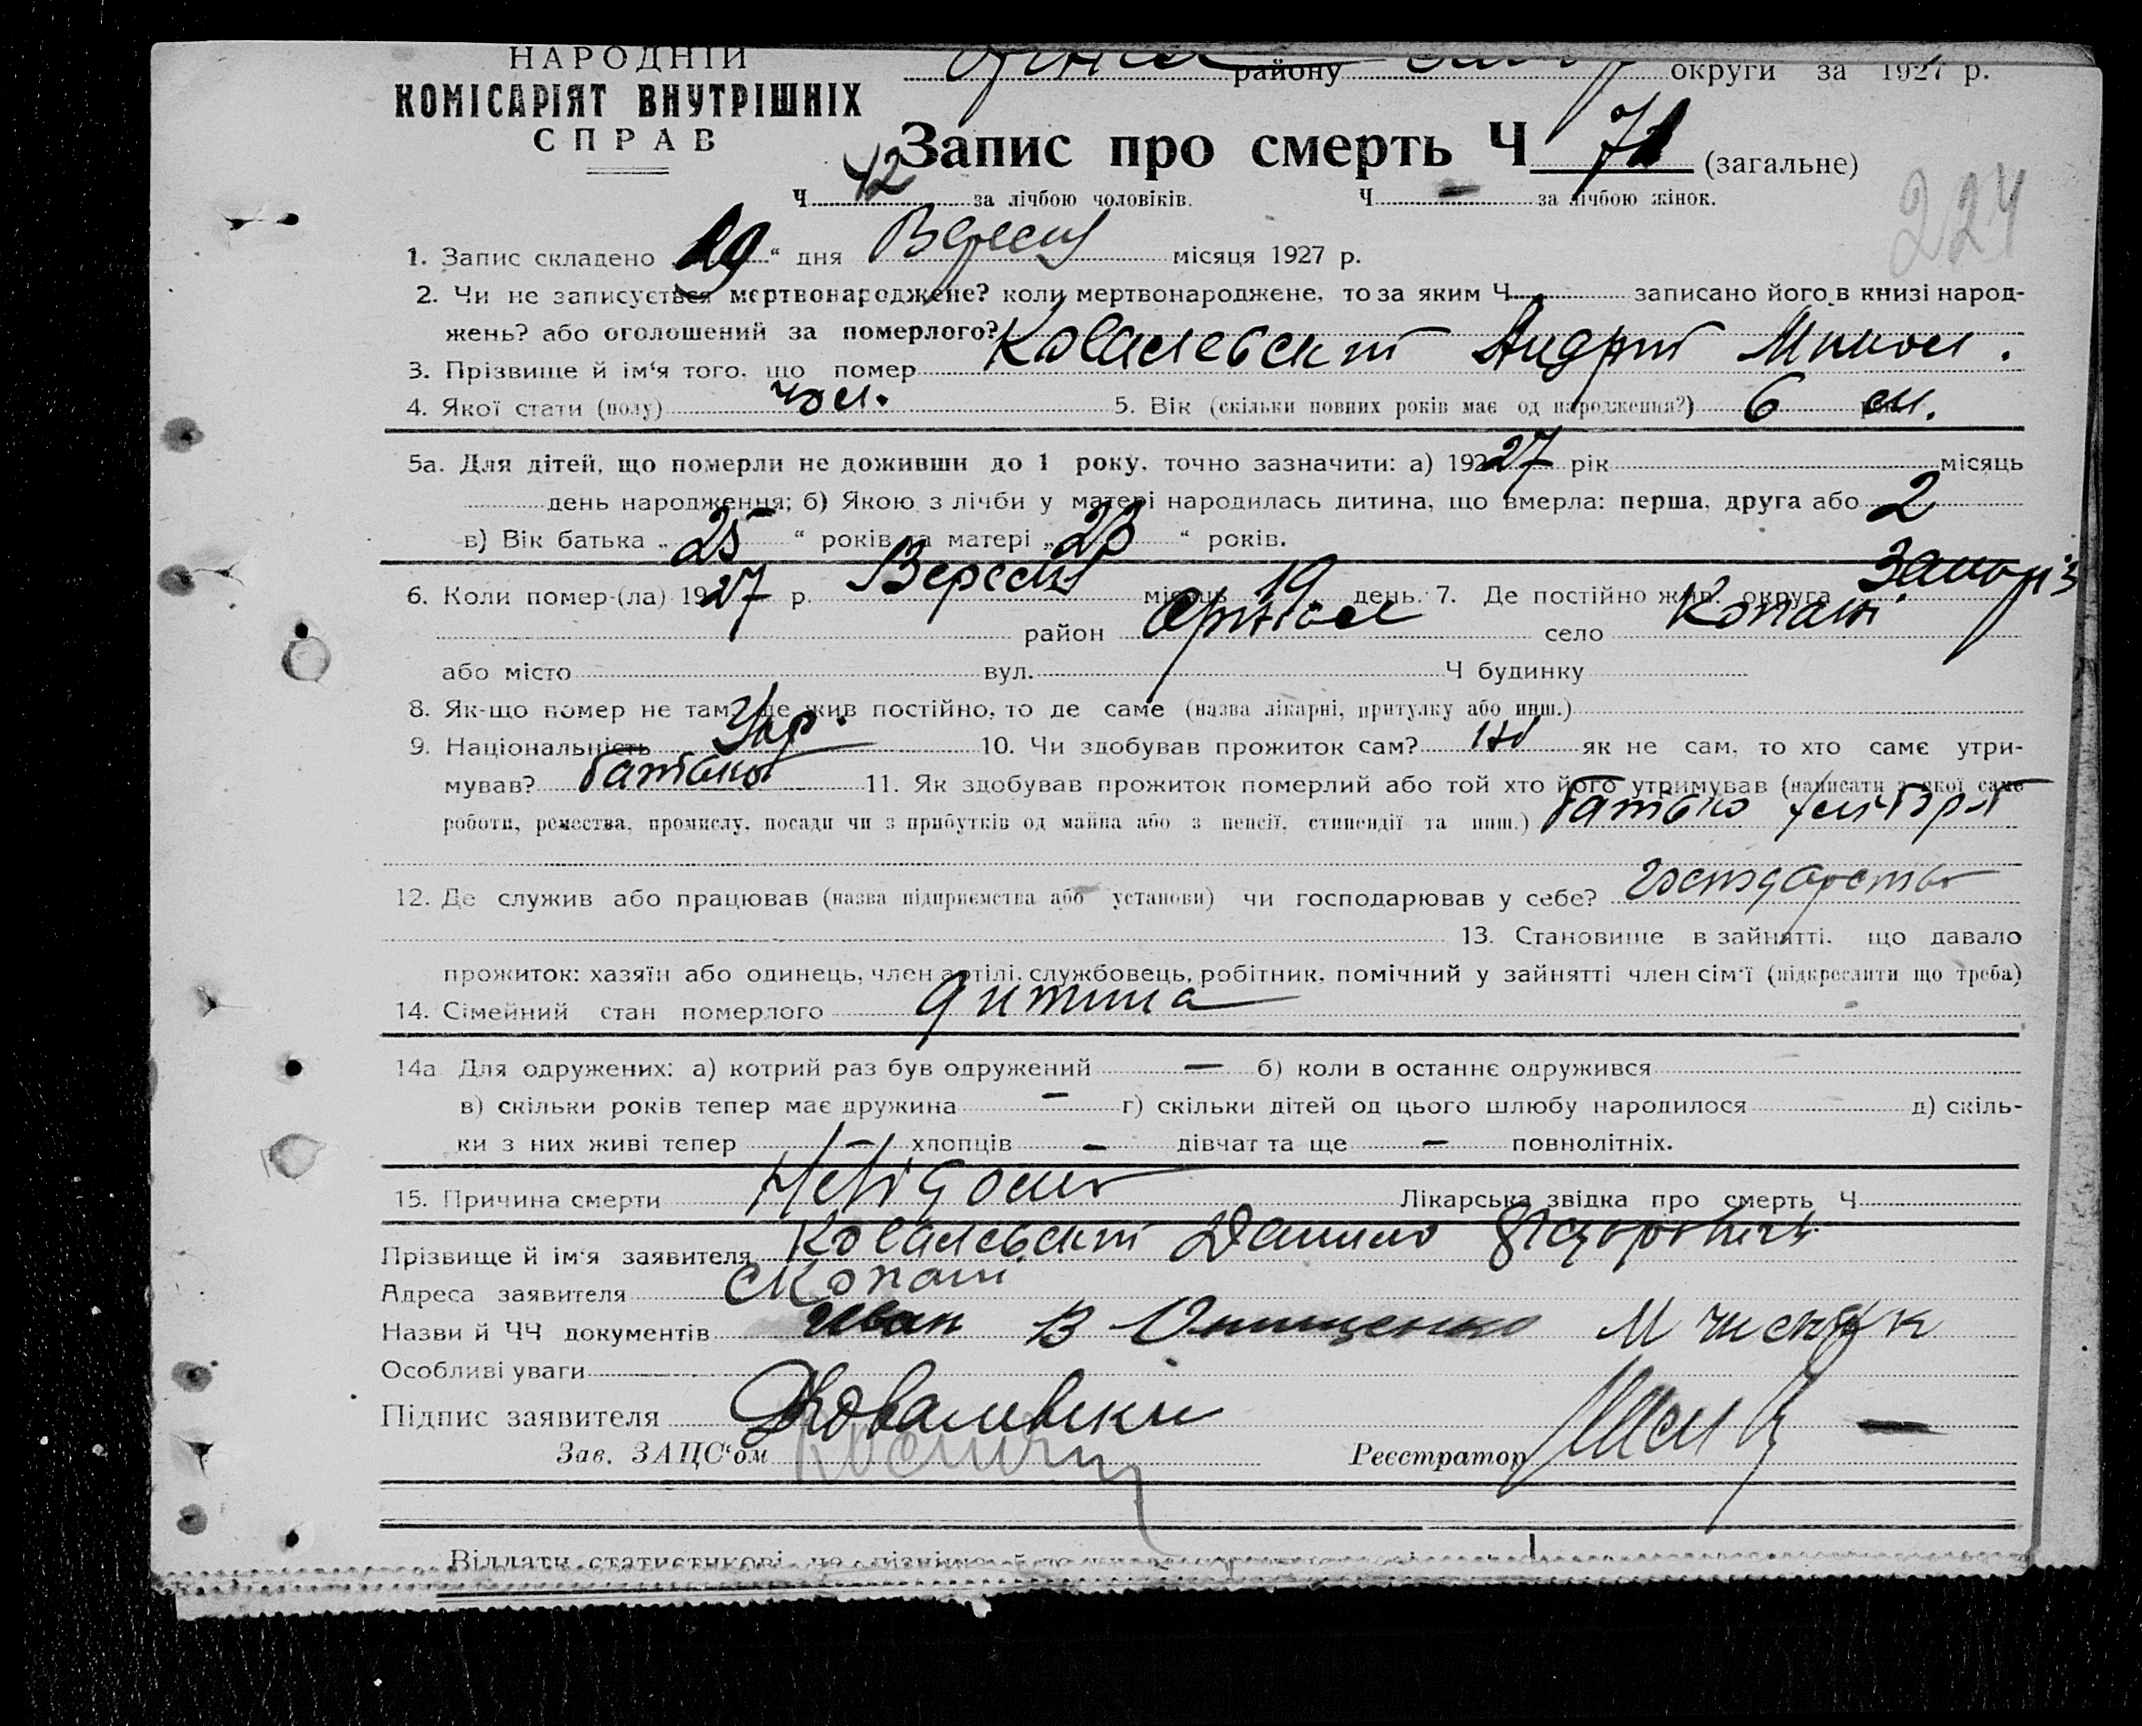 НАРОДНІЙ
району округи за 1927 р.
КОМІСАРІЯТ ВНУТРІШНІХ
СПРАВ
Запис про смерть Ч 71 (загальне)
Ч 42 за лічбою чоловіків. Ч — за лічбою жінок.
224
1. Запис складено 19 “ дня Вересня місяця 1927 р.
2. Чи не записується мертвонароджене? коли мертвонароджене, то за яким Ч записано його в книзі народ-
жень? або оголошений за померлого?
3. Прізвище й ім‘я того, що помер Ковалевский Андрій
4. Якої стати (полу) чол. 5. Вік (скільки повних років має од народження?) 6
5а. Для дітей, що померли не доживши до 1 року, точно зазначити: а) 192 27 рік місяць
день народження; б) Якою з лічби у матері народилась дитина, що вмерла: перша, друга або 2
в) Вік батька „ 25 “ років та матері „ 23 “ років.
6. Коли помер-(ла) 19 27 р. Вересня місяць 19 день. 7. Де постійно жив: округа Запоріз
район село Копані
або місто вул. Ч будинку
8. Як-що помер не там, де жив постійно, то де саме (назва лікарні, притулку або инш.)
9. Національність Укр. 10. Чи здобував прожиток сам? ні як не сам, то хто саме утри-
мував? батько 11. Як здобував прожиток померлий або той хто його утримував (написати з якої саме
роботи, ремества, промислу, посади чи з прибутків од майна або з пенсії, стипендії та инш.) батько хлібороб
12. Де служив або працював (назва підприємства або установи) чи господарював у себе? господарство
13. Становище в зайнятті, що давало
прожиток: хазяїн або одинець, член артілі, службовець, робітник, помічний у зайнятті член сім‘ї (підкреслити що треба)
14. Сімейний стан померлого дитина
14а Для одружених: а) котрий раз був одружений — б) коли в останнє одружився
в) скільки років тепер має дружина — г) скільки дітей од цього шлюбу народилося д) скіль-
ки з них живі тепер — хлопців — дівчат та ще — повнолітніх.
15. Причина смерти Невідомо Лікарська звідка про смерть Ч
Прізвище й ім‘я заявителя Ковалевский Данило
Адреса заявителя с Копані
Назви й ЧЧ документів Иван В Онищенко М
Особливі уваги
Підпис заявителя ДКовалевски
Зав. ЗАЦС‘ом Реєстратор